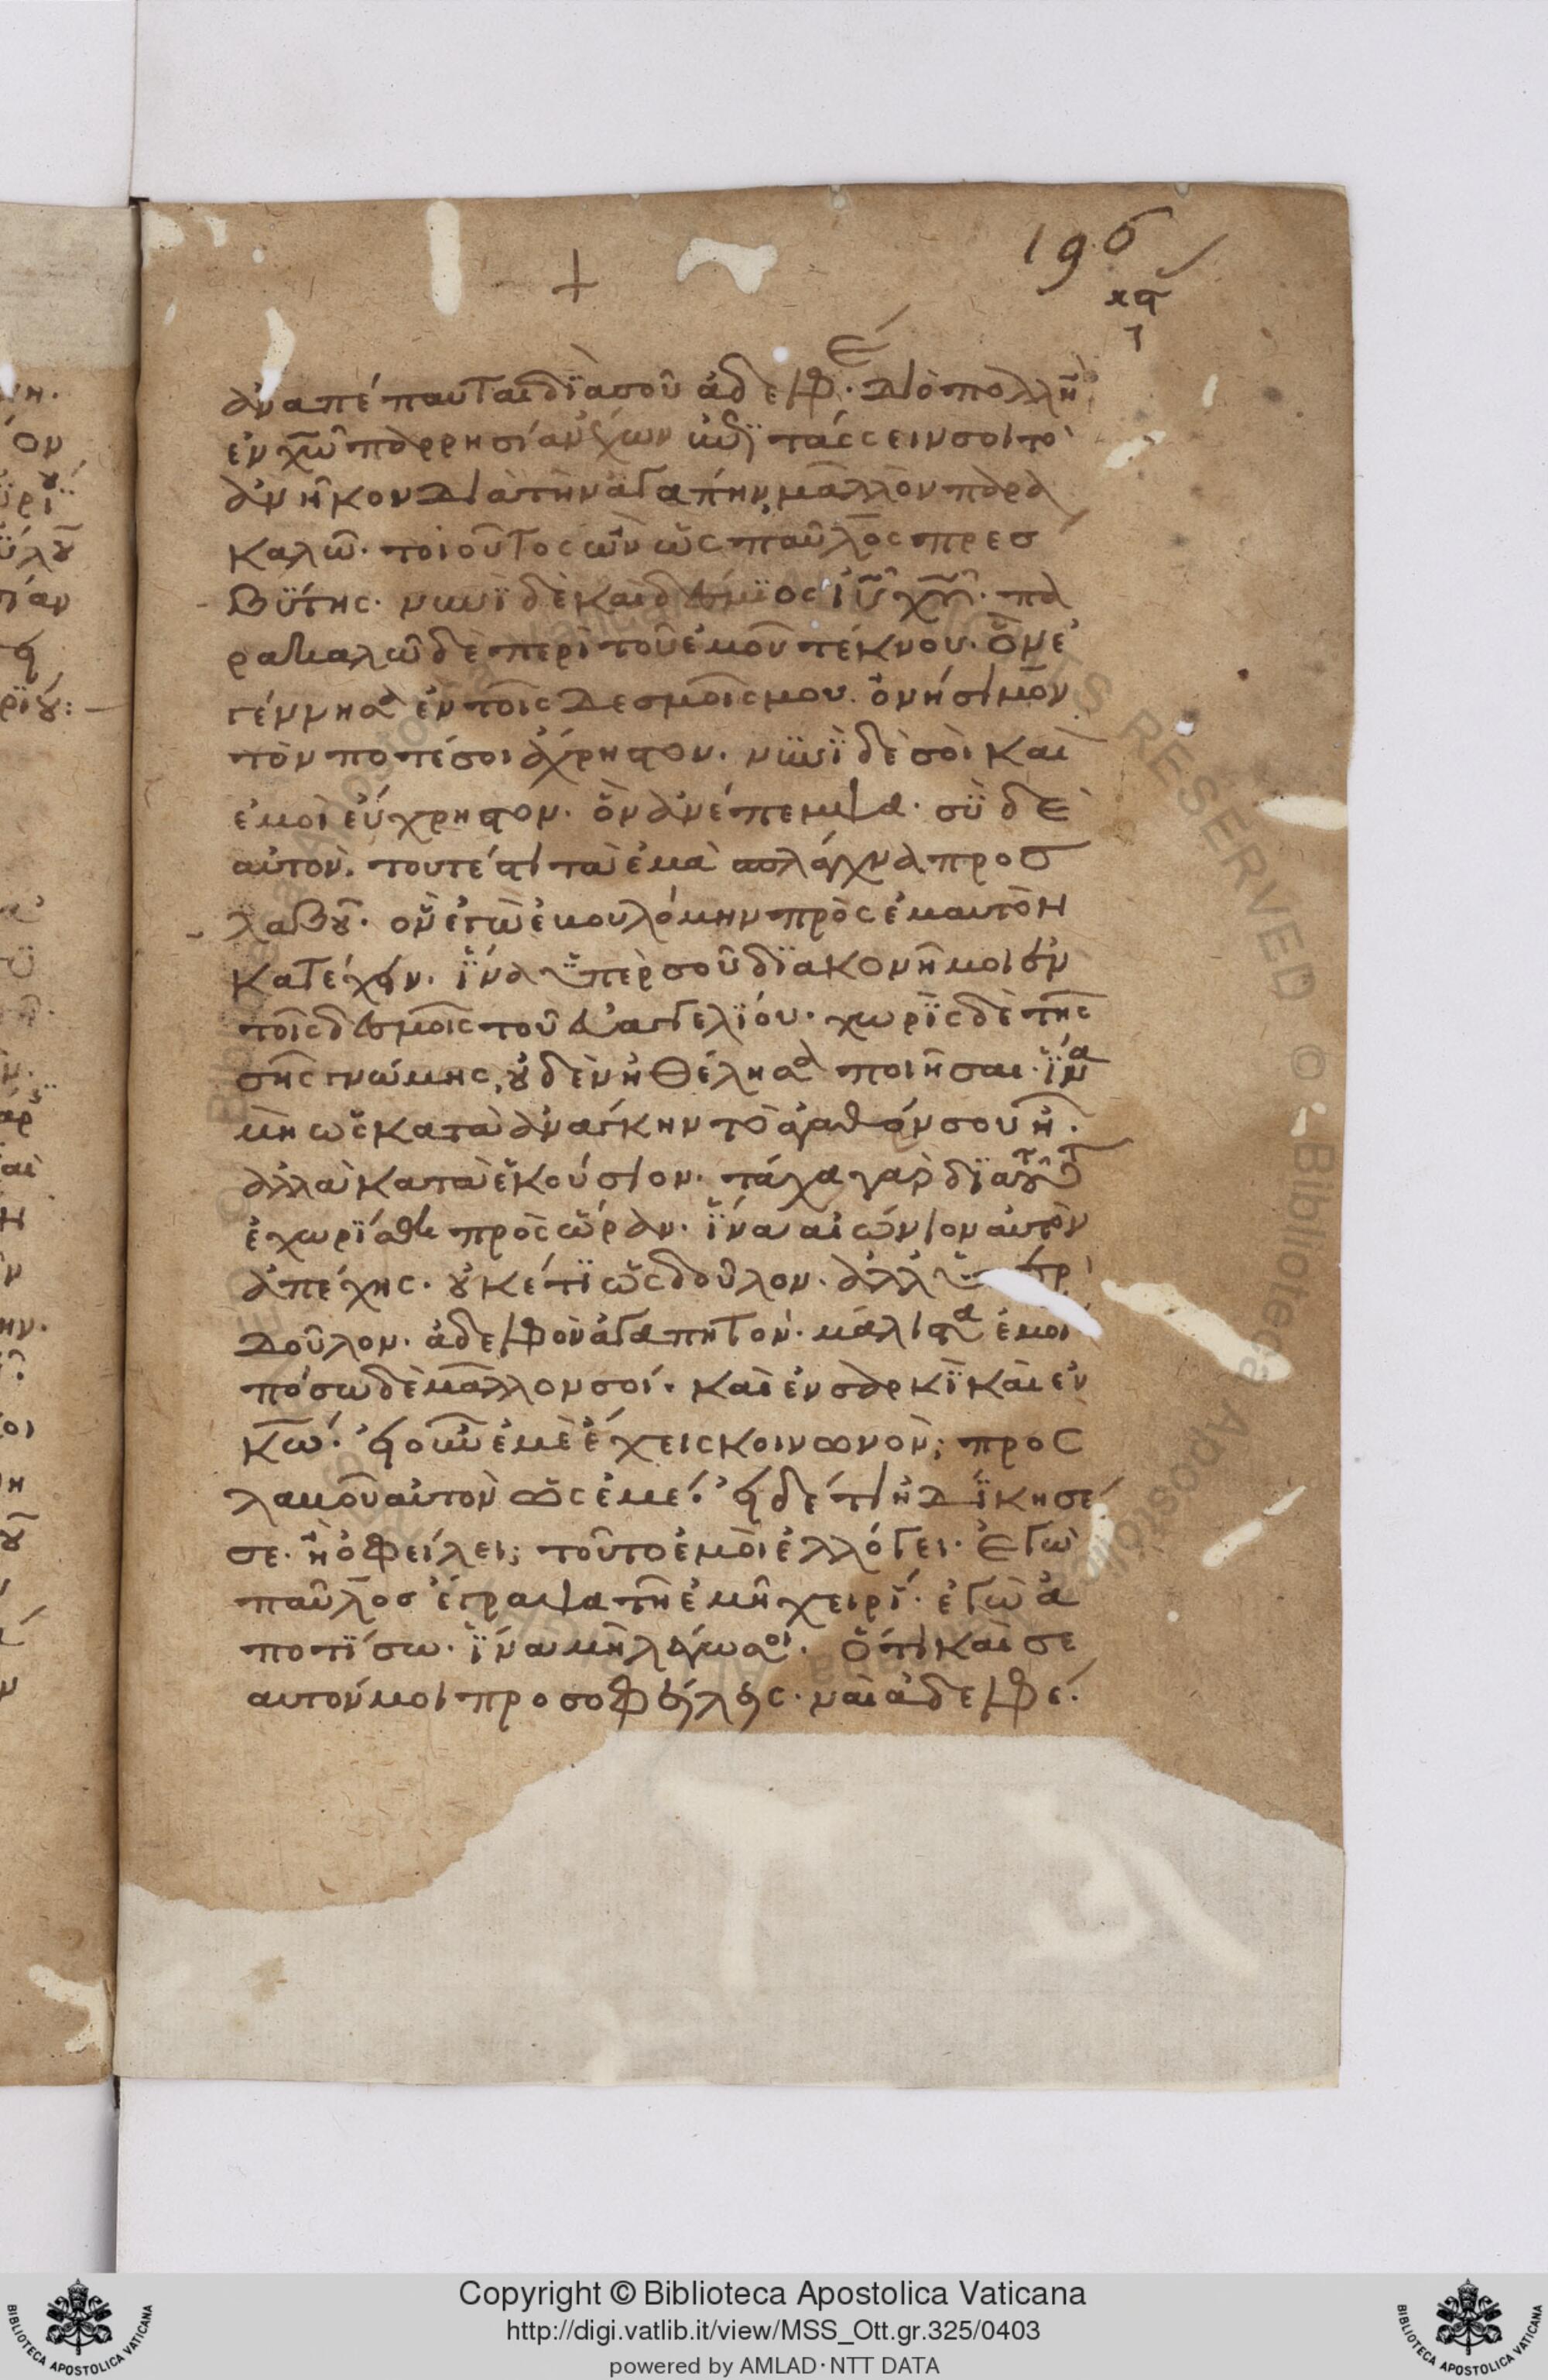 196
κϛ
ἀναπέπαυται διὰ σοῦ ἀδελφέ. Διὸ πολλὴ
ἐν χῶ παρρησίαν ἔχων ἐπιτάσσειν σοι τὸ
ἀνῆκον Διὰ τὴν ἀγαπήν, μᾶλλον παρα
καλῶ. τοιοῦτος ὢν ὡς παῦλος πρεσ
βϋτης. νυνῒ δὲ καὶ δέσμϊος ἰῦ χῦ. πα
ρακαλῶ δὲ περὶ τοῦ ἐμοῦ τέκνου. ὃν ἐ
γέννησα ἐν τοῖς Δεσμοῖς μου. ὀνήσιμον
τὸν ποτέ σοι ἄχρηστον. νυνῒ δὲ σοὶ καὶ
ἐμοὶ εὔχρηστον. ὃν ἀνέπεμψα. σὺ δὲ
αὐτόν. τουτέστι τὰ ἐμὰ σπλάγχνα προσ
λαβοῦ. ὃν ἐγὼ ἐβουλόμην πρὸς ἐμαυτὸν
κατέχειν. ἵνα ὑπὲρ σοῦ δϊακονῆ μοι ἐν
τοῖς δεσμοῖς τοῦ εὐαγγελϊου. χωρὶς δὲ τῆς
σῆς γνώμης, οὐδὲν ἠθέλησα ποιῆσαι. ἵνα
μὴ ὡς κατὰ ἀνάγκην τὸ ἀγαθόν σου ἦ.
ἀλλὰ κατὰ ἑκούσιον. τάχα γὰρ δϊα τοῦτο
ἐχωρίσθη πρὸς ὥραν. ἵνα αἰώνιον αὐτὸν
ἀπέχης. οὐκέτϊ ὡς δοῦλον. ἀλλ ὑπὲρ
Δοῦλον. ἀδελφὸν ἀγαπητόν. μάλιστα ἐμοὶ
πόσω δὲ μᾶλλον σοί. καὶ ἐν σαρκῒ καὶ ἐν
κῶ. εἰ οὖν ἐμὲ ἔχεις κοινωνὸν; προς
λαβοῦ αὐτὸν ὡς ἐμέ. εἰ δέ τι ἠΔίκησέ
σε. ἢ ὀφείλει; τοῦτο ἐμοὶ ἐλλόγει. Ἐγὼ
παῦλοσ ἔγραψα τῆ ἐμῆ χειρί. ἐγὼ ἀ
ποτϊσω. ἵνα μὴ λέγω σοι. ὅτι καὶ σε
αυτόν μοι προσοφείλεις. ναὶ ἀδελφέ.
Copyright © Biblioteca Apostolica Vaticana
http://digi.vatlib.it/view/MSS_Ott.gr.325/0403
powered by AMLAD·NTT DATA